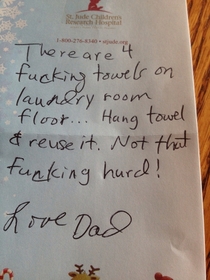 St. Jude Children's
Research Hospital
1-800-276-8340 • stjude.org
There are 4
fucking towels on
laundry room
floor... Hang towel
& reuse it. Not that
fucking hurd!
Love Dad